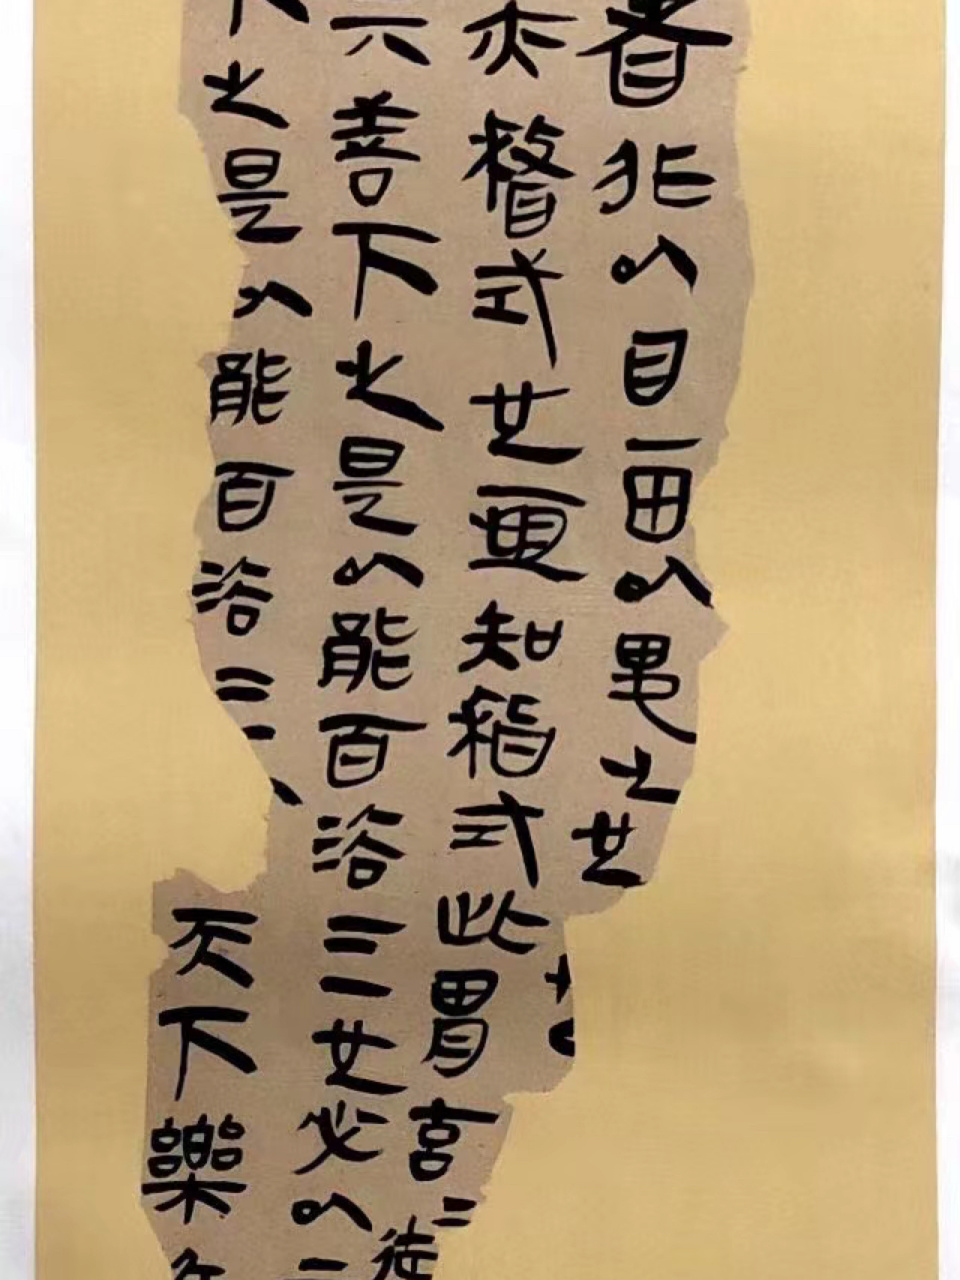 者非以目一田以之也
亦稽式也亙知稽式此胃
六善下之是以能百浴三一也必以二
下之是以能百浴二
天下樂